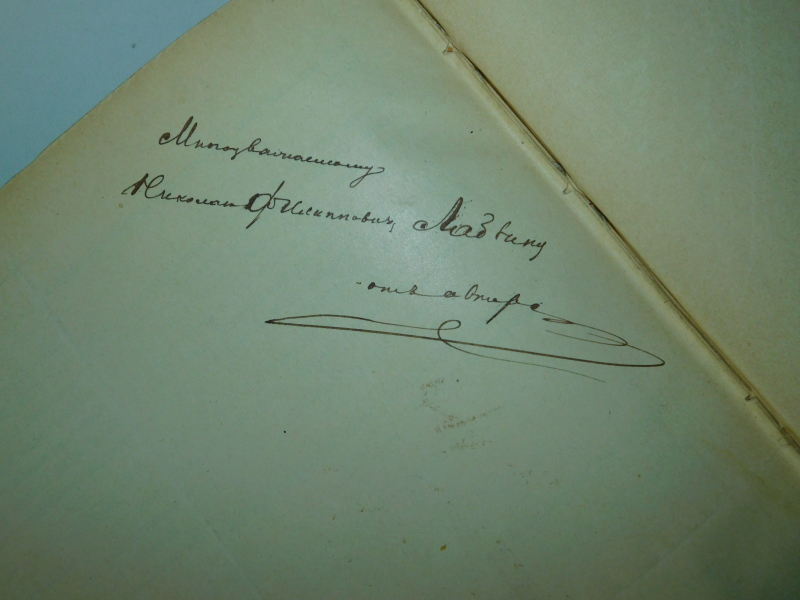 Многоуважаемому
Николаю Филипповичу
отъ автора